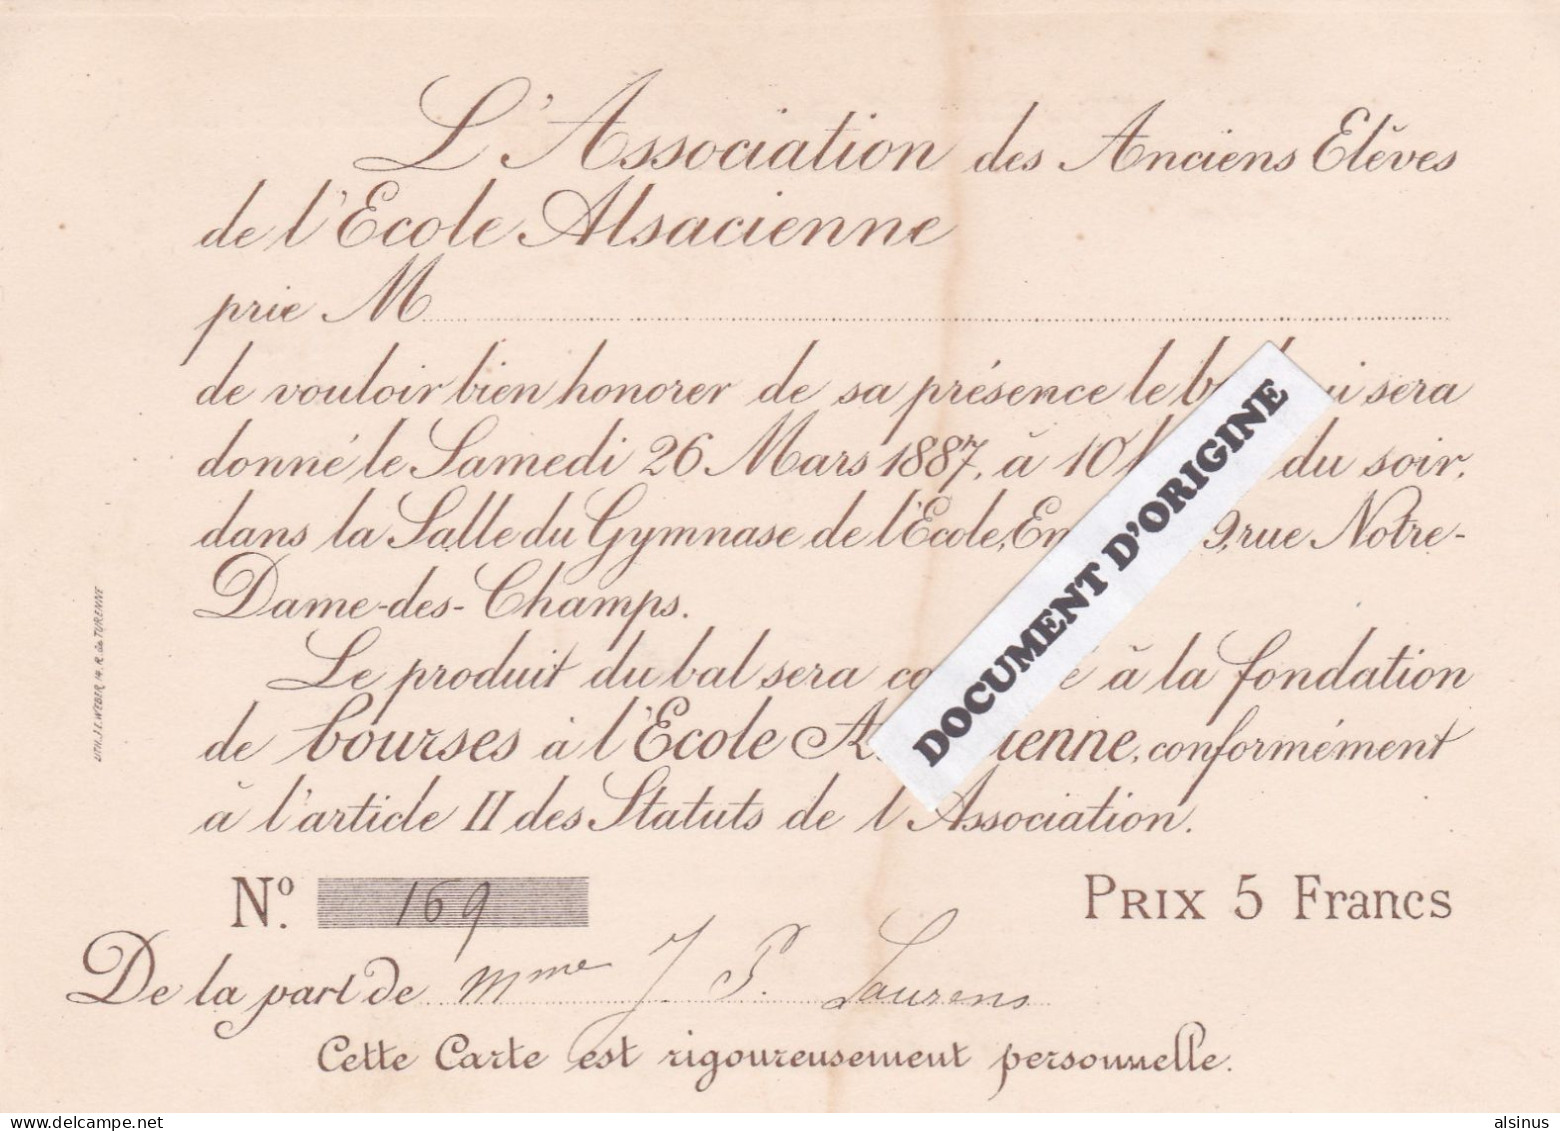 L'Association des Anciens Elèves
de l'Ecole Alsacienne
prie M
de vouloir bien honorer de sa présence le sera
donné le Samedi 26 Mars 1887, à 10 du soir,
dans la Salle du Gymnase de l'Ecole, 9, rue Notre-
Dame-des-Champs.
Le produit du bal sera à la fondation
de bourses à l'Ecole conformément
à l'article II des Statuts de l'Association.
No. 169
PRIX 5 FRANCS
De la part de Mme J. P. Laurens
Cette Carte est rigoureusement personnelle.
LITH. J. E. WEBER, 14. R. de TURENNE
DOCUMENT D'ORIGINE
www.delcampe.net
alsinus